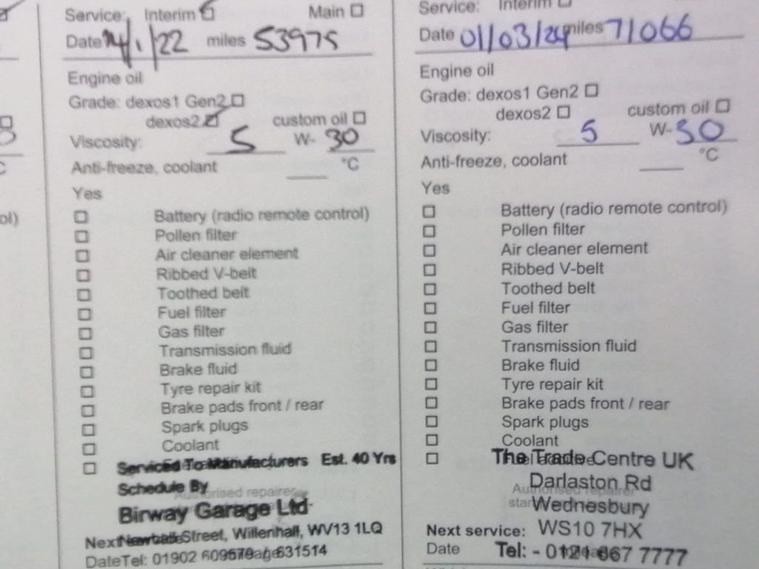 Service: Interim Main
Date 14/1/22 miles 53975
Engine oil
Grade: dexos1 Gen2
dexos2 custom oil
Viscosity: 5 W- 30
Anti-freeze, coolant °C
Yes
Battery (radio remote control)
Pollen filter
Air cleaner element
Ribbed V-belt
Toothed belt
Fuel filter
Gas filter
Transmission fluid
Brake fluid
Tyre repair kit
Brake pads front / rear
Spark plugs
Coolant
Serviced To Manufacturers Est. 40 Yrs
Schedule By
Authorised repairer
Birway Garage Ltd
Street, Willenhall, WV13 1LQ
Date Tel: 01902 631514
Service: Interim
Date 01/03/24 miles 71066
Engine oil
Grade: dexos1 Gen2
dexos2 custom oil
Viscosity: 5 W- 30
Anti-freeze, coolant °C
Yes
Battery (radio remote control)
Pollen filter
Air cleaner element
Ribbed V-belt
Toothed belt
Fuel filter
Gas filter
Transmission fluid
Brake fluid
Tyre repair kit
Brake pads front / rear
Spark plugs
Coolant
The Trade Centre UK
Darlaston Rd
Authorised repairer
Wednesbury
Next service: WS10 7HX
Date Tel: - 0121 667 7777
ol)